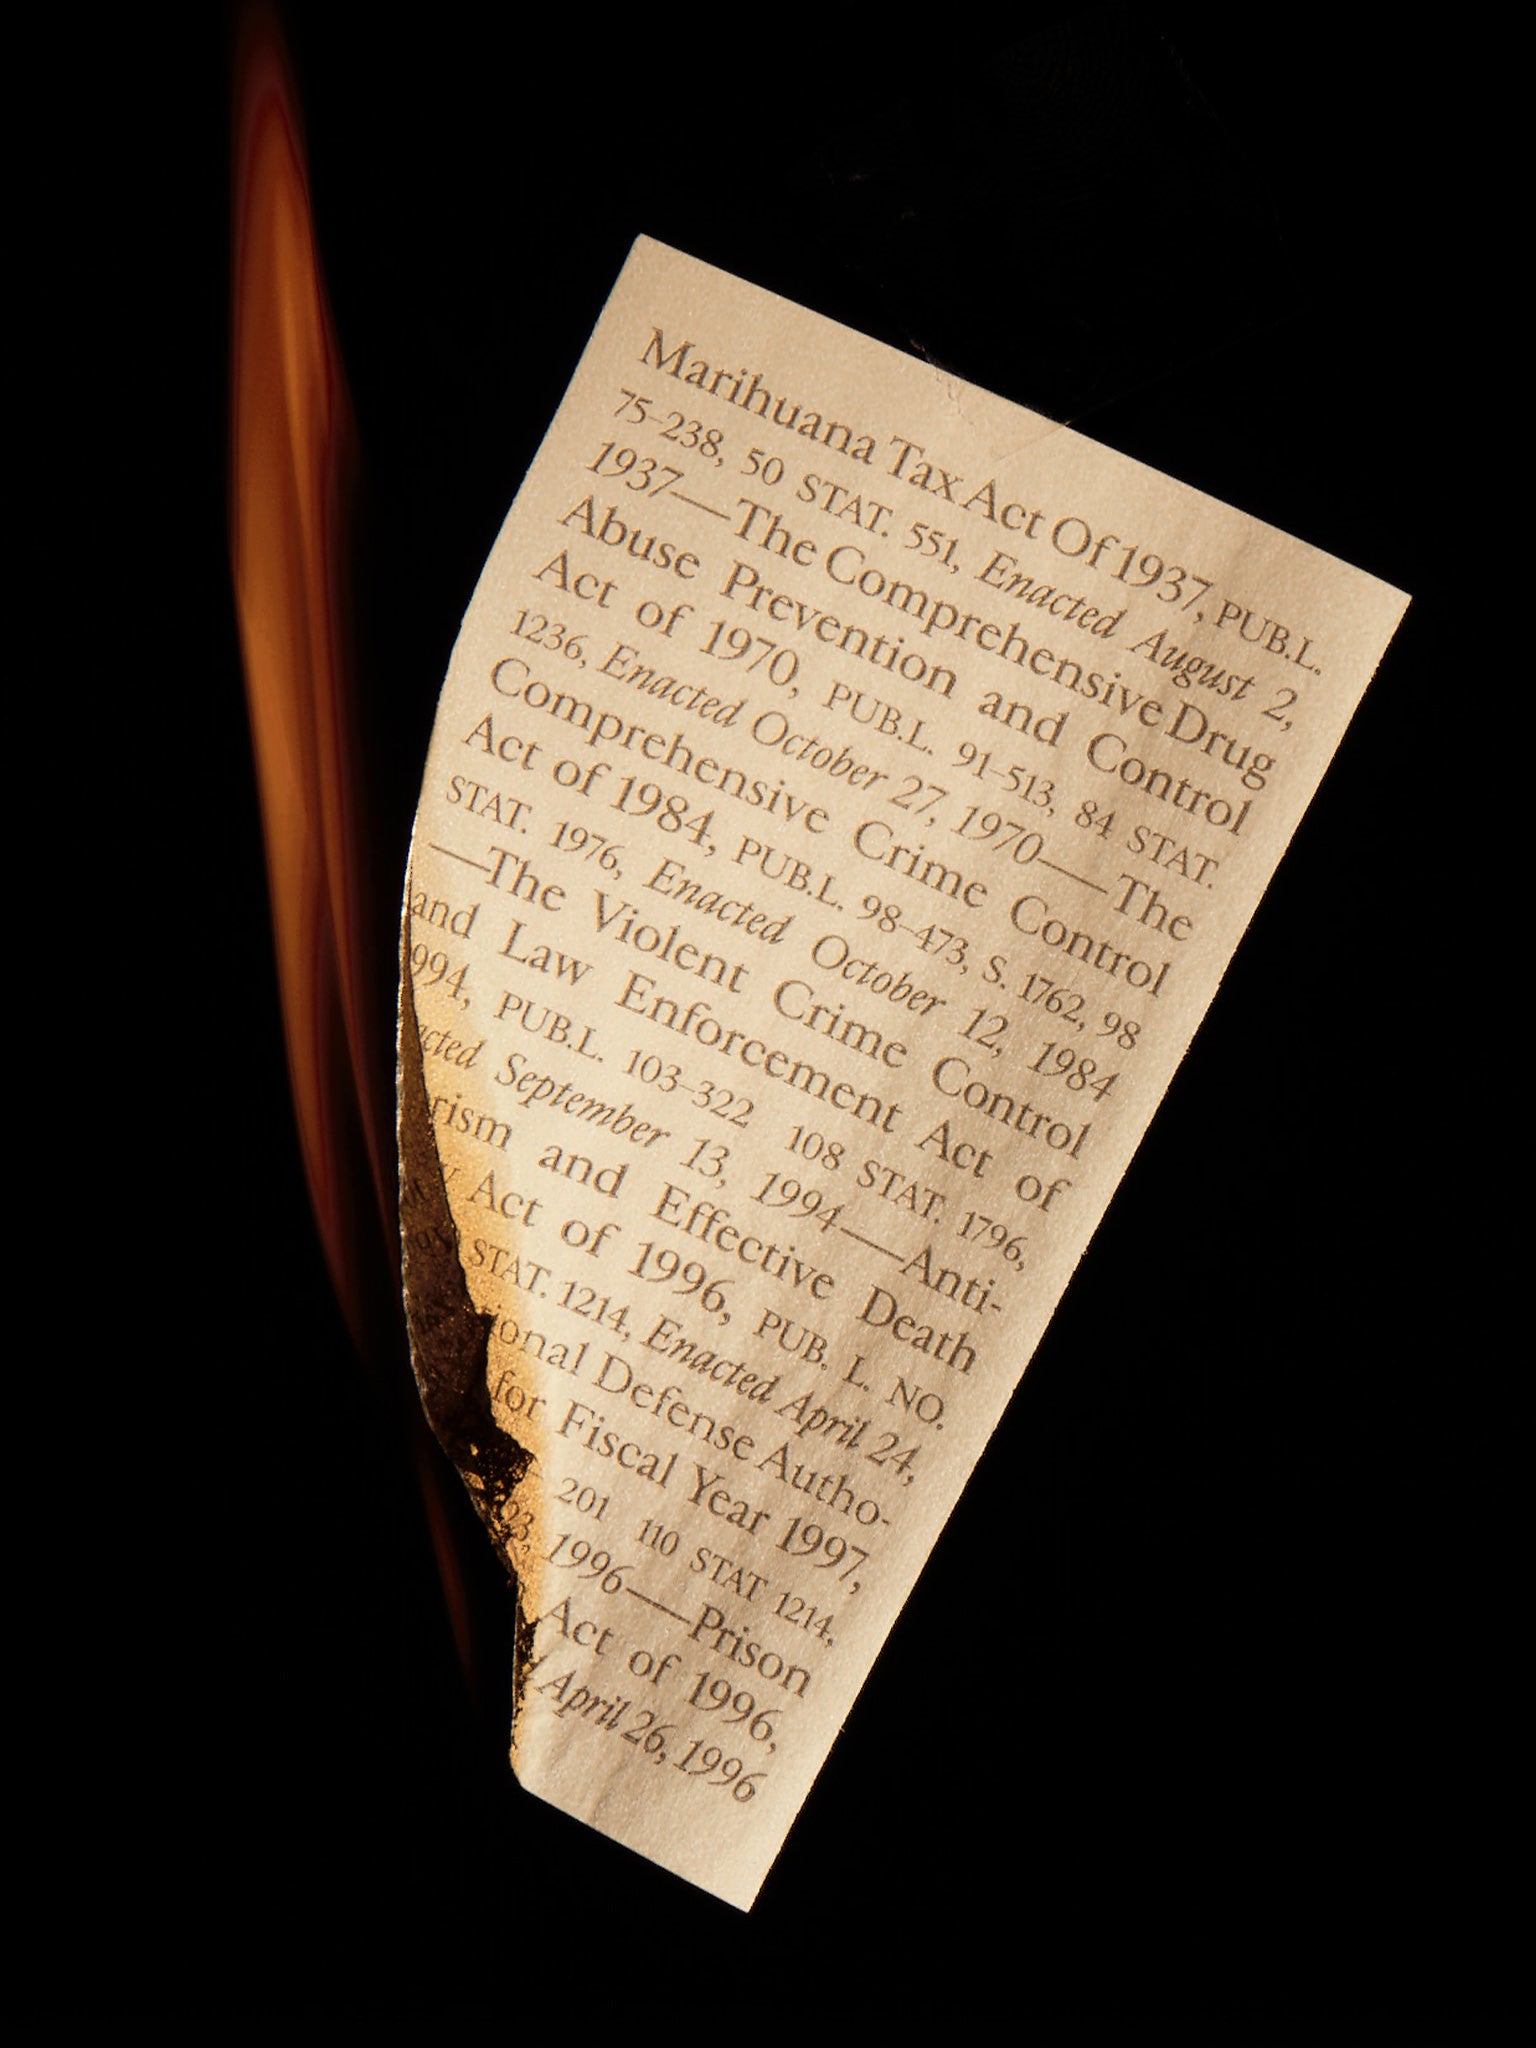 Marihuana Tax Act Of 1937, PUB.L.
75–238, 50 STAT. 551, Enacted August 2,
1937—The Comprehensive Drug
Abuse Prevention and Control
Act of 1970, PUB.L. 91–513, 84 STAT.
1236, Enacted October 27, 1970—The
Comprehensive Crime Control
Act of 1984, PUB.L. 98–473, S. 1762, 98
STAT. 1976, Enacted October 12, 1984
—The Violent Crime Control
and Law Enforcement Act of
994, PUB.L. 103–322 108 STAT. 1796,
acted September 13, 1994—Anti-
rism and Effective Death
Act of 1996, PUB. L. NO.
STAT. 1214, Enacted April 24,
ional Defense Autho-
for Fiscal Year 1997,
201 110 STAT 1214,
23, 1996—Prison
Act of 1996,
April 26, 1996